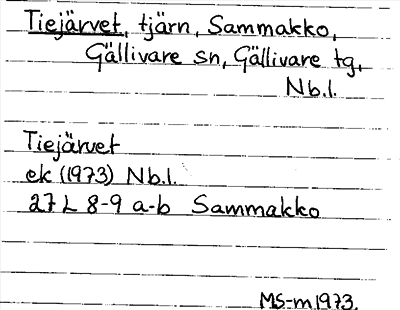 Tiejärvet, tjärn, Sammakko,
Gällivare sn, Gällivare tg,
Nb.l.
Tiejärvet
ek (1973) Nb.l.
27 L 8-9 a-b Sammakko
MS-m 1973.